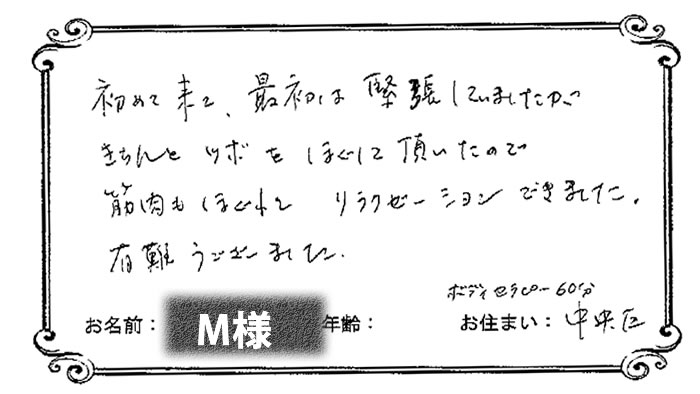 初めて来て、最初は緊張していましたが
きちんとツボをほぐして頂いたので
筋肉もほぐれて リラクゼーションできました。
有難うございました。
ボディセラピー60分
お名前： M様 年齢： お住まい： 中央区